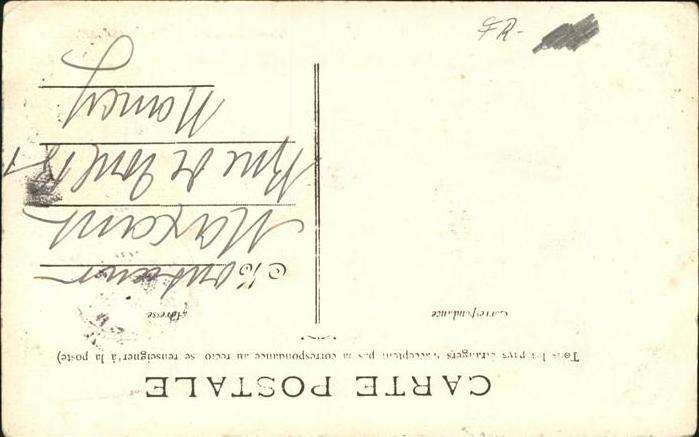 CARTE POSTALE
Tous les pays étrangers n'acceptent pas la correspondance au recto (se renseigner à la poste)
Correspondance
Adresse
Maxant
Rue de
Nancy
FR-